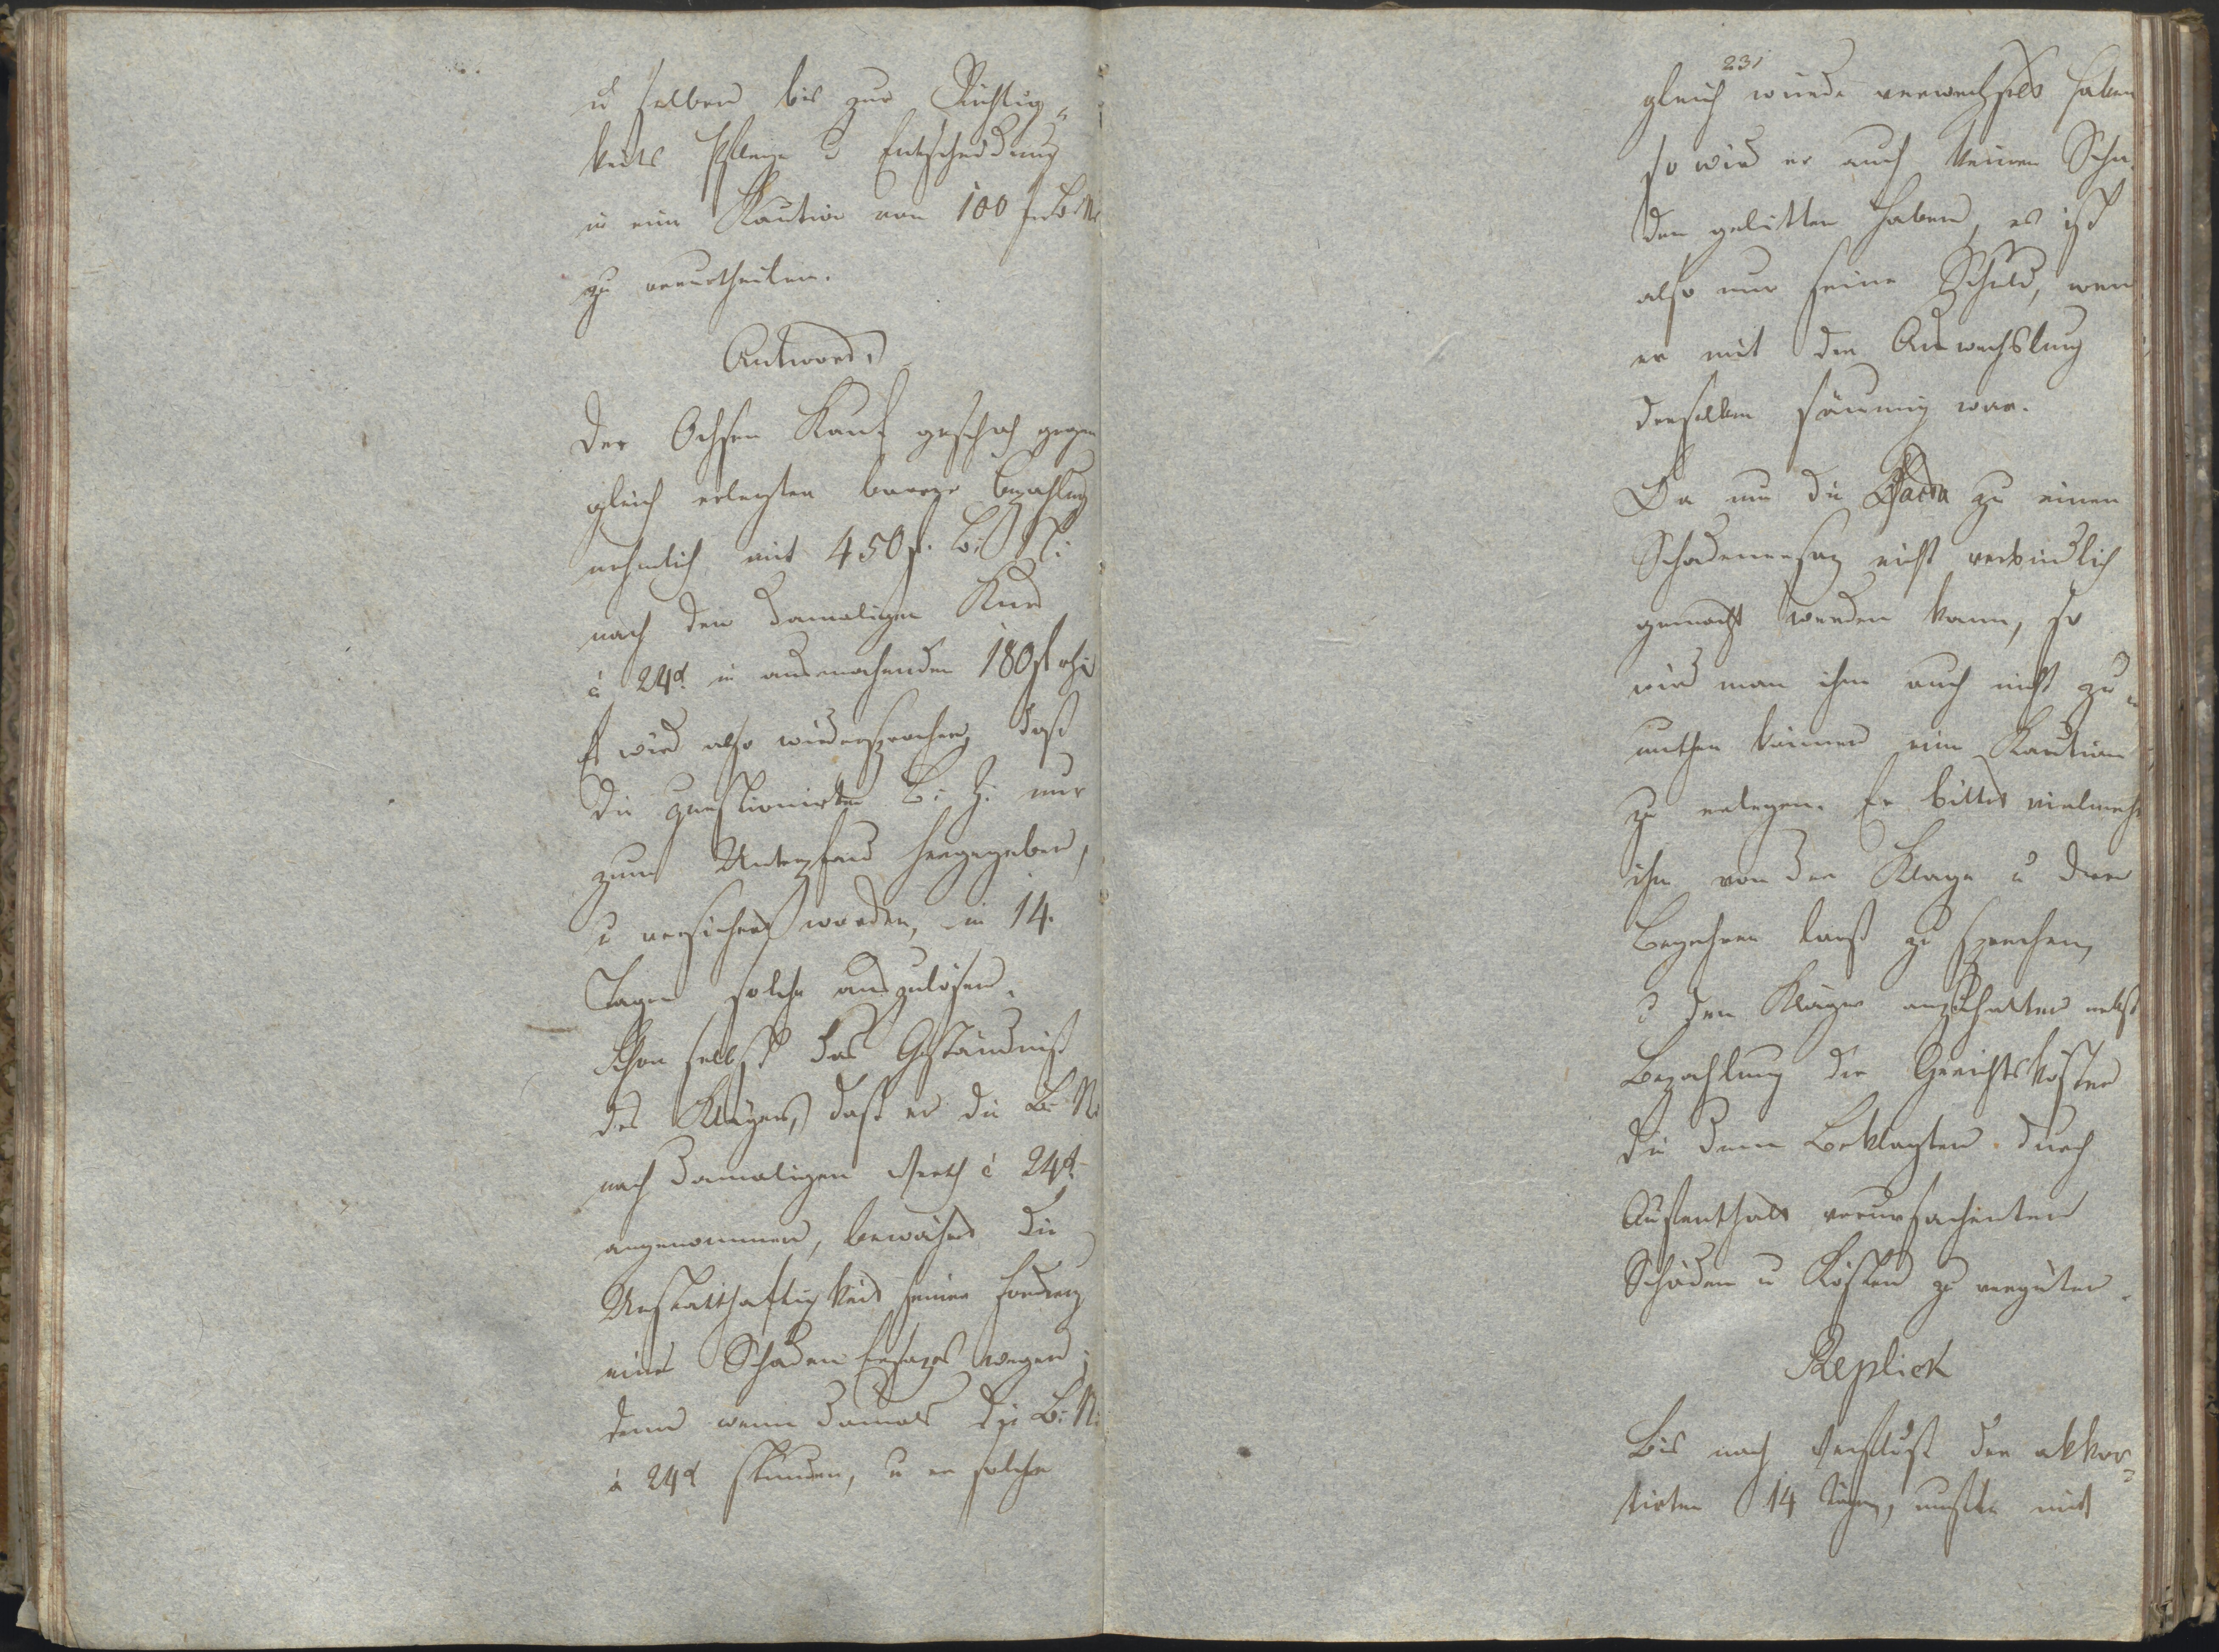 u selben bis zur Richtig„
keits Pflege u Entscheidung
in eine Kaution von 100 f B: N:
zu verurtheilen.
Antwort.
Der Ochsen Kauf geschah gegen
gleich erlegten baarer Bezahlung
nehmlich mit 450 f. B: N:
nach den damaligen Kurs
à 24 x. in ausmachenden 180 f rh:
Es wird also widersprochen, daß
die questionirten B: Z: nur
zum Unterpfand hergegeben,
u versichert worden, in 14.
Tagen solche auszulösen.
Schon selbst das Geständniß
des Klägers, daß er die B: N:
nach damaligen Werth à 24 x.
angenommen, bewährt die
Unstatthaftigkeit seiner Foderung
eines Schaden Ersazes wegen;
denn wenn damals die B: N:
à 24 x stunden, u er solche
231
gleich würde verwechselt haben
so wird er auch keinen Scha„
den gelitten haben, es ist
also nur seine Schuld, wen
er mit der Auswechslung
derselben säumig war.
Da nun die Facta zu einen
Schadenersaz nicht verbindlich
gemacht werden kann, so
wird man ihm auch nicht zu„
muthen können eine Kaution
zu erlegen. Er bittet vielmehr
ihn von der Klage u dem
Begehren loos zu sprechen,
u den Kläger anzuhalten nebst
Bezahlung der Gerichtskösten
die dem Beklagten durch
Aufenthalt verursachenten
Schäden u Kösten zu vergüten.
Replick
Bis nach Verfluß der akkor„
tirten 14 Tägen, mußte mit